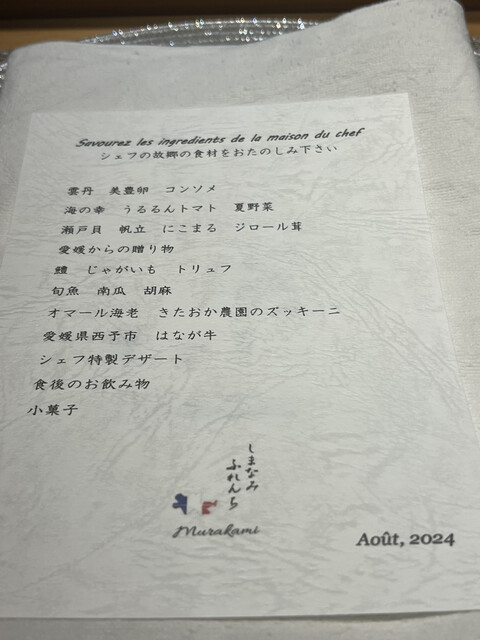 Savourez les ingredients de la maison du chef
シェフの故郷の食材をおたのしみ下さい
雲丹　美豊卵　コンソメ
海の幸　うるるんトマト　夏野菜
瀬戸貝　帆立　にこまる　ジロール茸
愛媛からの贈り物
鱧　じゃがいも　トリュフ
旬魚　南瓜　胡麻
オマール海老　きたおか農園のズッキーニ
愛媛県西予市　はなが牛
シェフ特製デザート
食後のお飲み物
小菓子
しまなみ
ふれんち
Murakami
Août, 2024